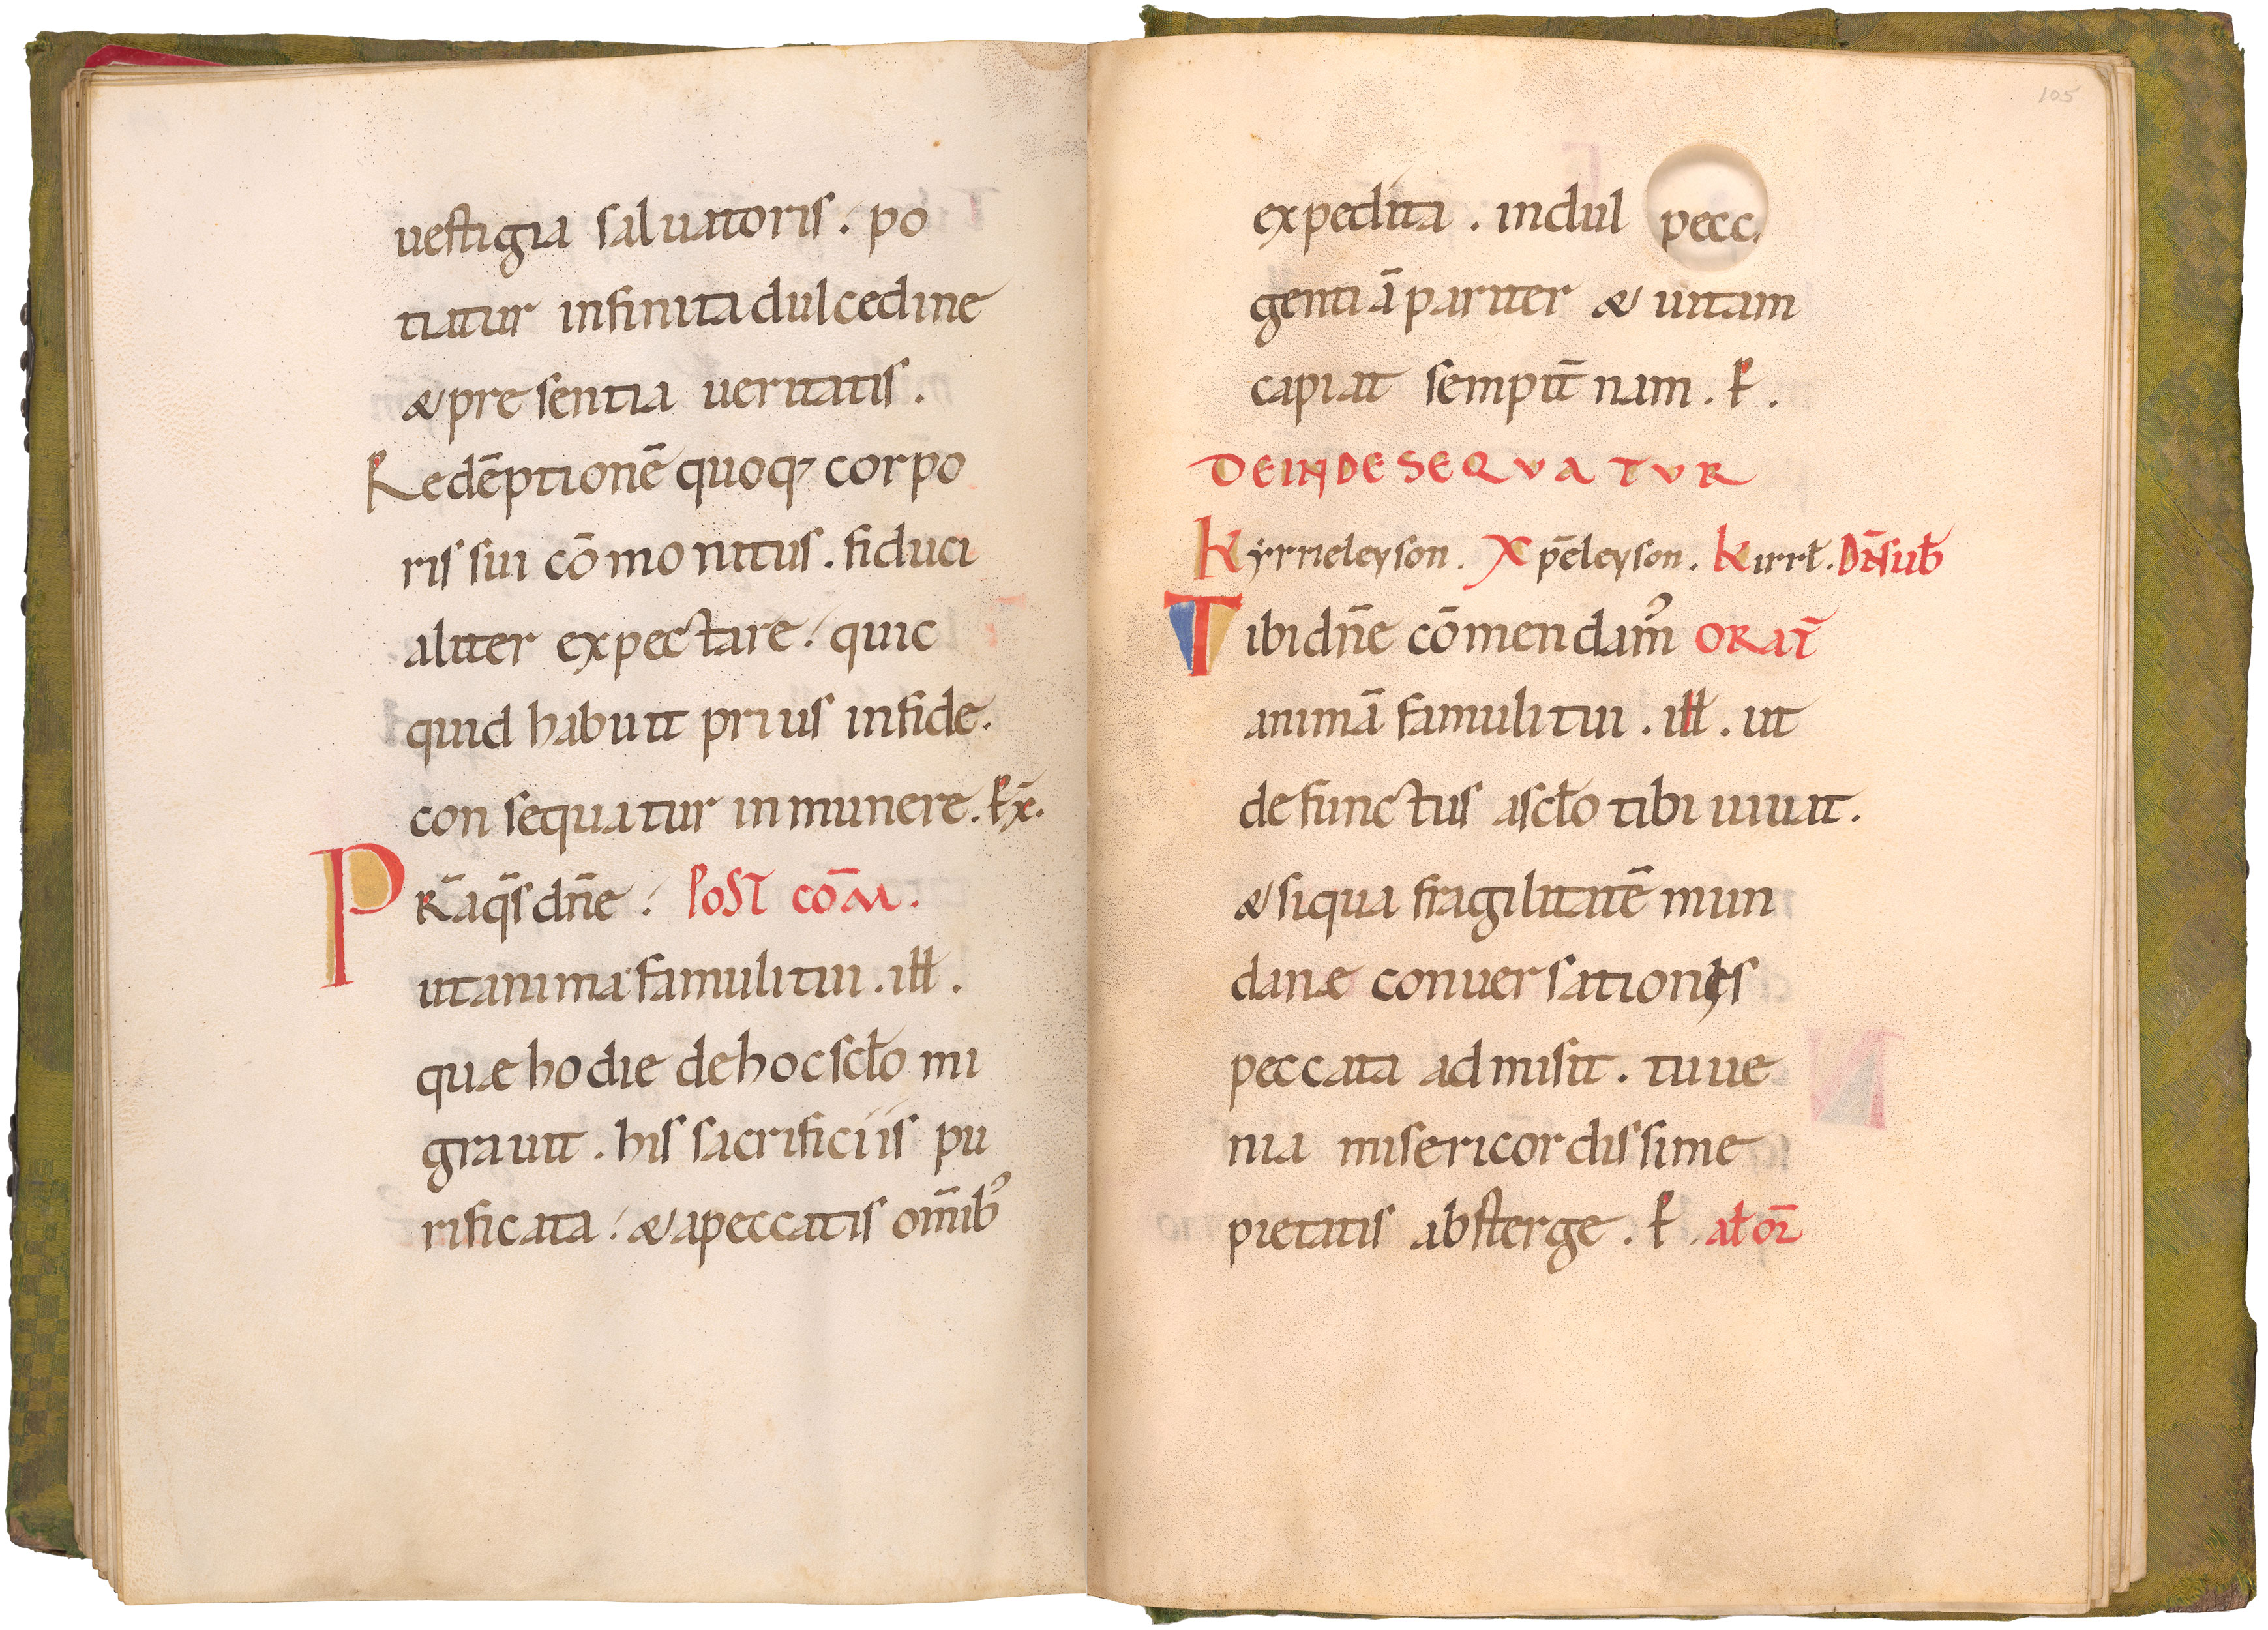 uestigia saluatoris. po
tiatur infinita dulcedine
& presentia ueritatis.
Redēptionē quoq; corpo
ris sui cōmonitus. fiduci
aliter expectare. quic
quid habuit prius in fide.
consequatur in munere. P̄ x̄.
PRĀ q̄s dn̄e. POST CŌM.
ut anima famuli tui. ill̄.
quæ hodie de hoc scl̄o mi
grauit. his sacrificiis pu
rificata. & a peccatis om̄ib᾽
105
expedita. indul pecc
gentiā pariter & uitam
capiat sempit̄nam. P̄.
DEINDE SEQVATVR
Kyrrieleyson. Xp̄eleyson. Kirrl̄. Dn̄s ub̄
Tibi dn̄e cōmendam᾽ ORAT̄
animā famuli tui. ill̄. ut
defunctus a scl̄o tibi uiuat.
& si qua fragilitatē mun
danæ conuersationis
peccata admisit. tu ue
nia misericordissime
pietatis absterge. P̄. al̄ or̄